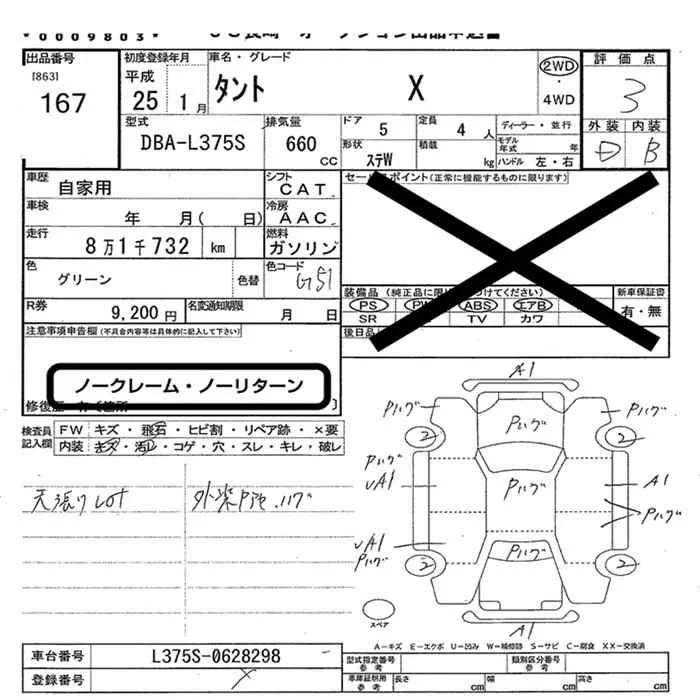 *0009803*
出品番号 初度登録年月 車名・グレード 評価点
[863] 平成 2WD
167 25 1月 タント X ・ 3
4WD
外装 内装
型式 排気量 ドア 5 定員 4人 ディーラー・並行
D B
DBA-L375S 660 CC 形状 ステW 積載 kg モデル年式 年
ハンドル 左・右
車歴 自家用 シフト CAT セールスポイント(正常に機能するものに限ります)
車検 年 月( 日) 冷房 AAC
走行 8万1千732 km 燃料 ガソリン
色 グリーン 色替 色コード G51 装備品(純正品に限 つけてください) 新車保証書
PS PW ABS エアB 有・無
R券 9,200円 名変通知期限 月 日 SR TV カワ
注意事項申告欄(不具合内容等は具体的に記入して下さい) 後日品
ノークレーム・ノーリターン
修復歴
検査員記入欄 FW キズ・飛石・ヒビ割・リペア跡・×要
内装 キズ・汚レ・コゲ・穴・スレ・キレ・破レ
A1
Pハゲ Pハゲ Pハゲ
2 2
Pハゲ
UA1 Pハゲ A1
天張りLOT Pハゲ
UA1
Pハゲ Pハゲ
2 2
スペア A1
A-キズ E-エクボ U-凹ミ W-補修跡 S-サビ C-腐食 XX-交換済
車台番号 L375S-0628298 型式指定番号 参考 類別区分番号 参考
登録番号 車庫証明用 参考 長さ cm 幅 cm 高さ cm